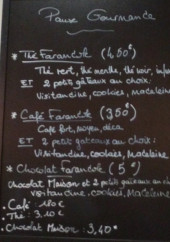 Pause Gourmande
* Thé Farandole (4,50€)
Thé vert, thé menthe, thé noir,
ET 2 petits gâteaux au choix.
Visitandine, cookies, madeleine
* Café Farandole (3,50€)
Café fort, moyen, déca
ET 2 petits gateaux au choix:
Visitandine, cookies, Madeleine
* Chocolat Farandole (5€)
Chocolat Maison et 2 petits gâteaux au
Visitandine, cookies, Madeleine
- Café:
- Thé: 3.10€
- Chocolat Maison: 3,40€